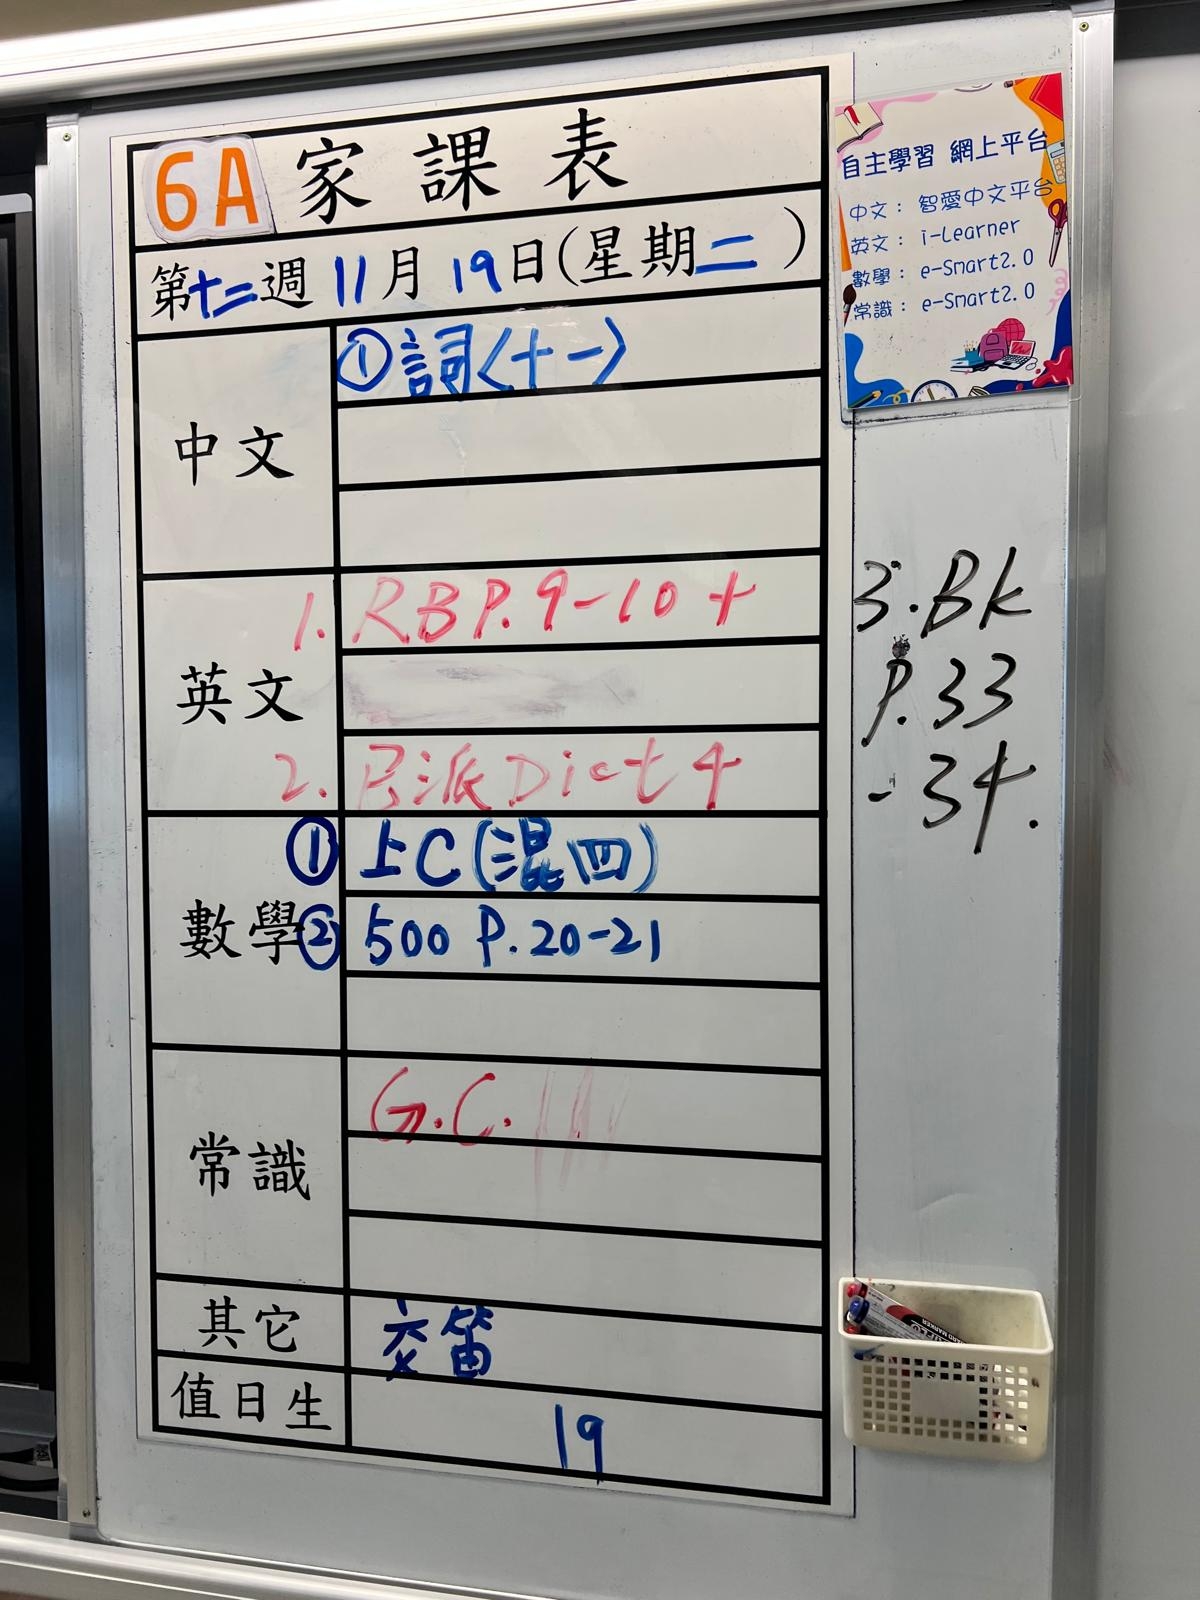 6A 家課表
第十二週 11月 19日(星期二)
中文
①詞〈十一〉
英文
1. RB P.9-10 +
2. 已派 Dict 4
3. BK
P.33
-34.
數學
① 上C(混四)
② 500 P.20-21
常識
G.C.
其它
交笛
值日生
19
自主學習 網上平台
中文： 智愛中文平台
英文： i-Learner
數學： e-Smart2.0
常識： e-Smart2.0